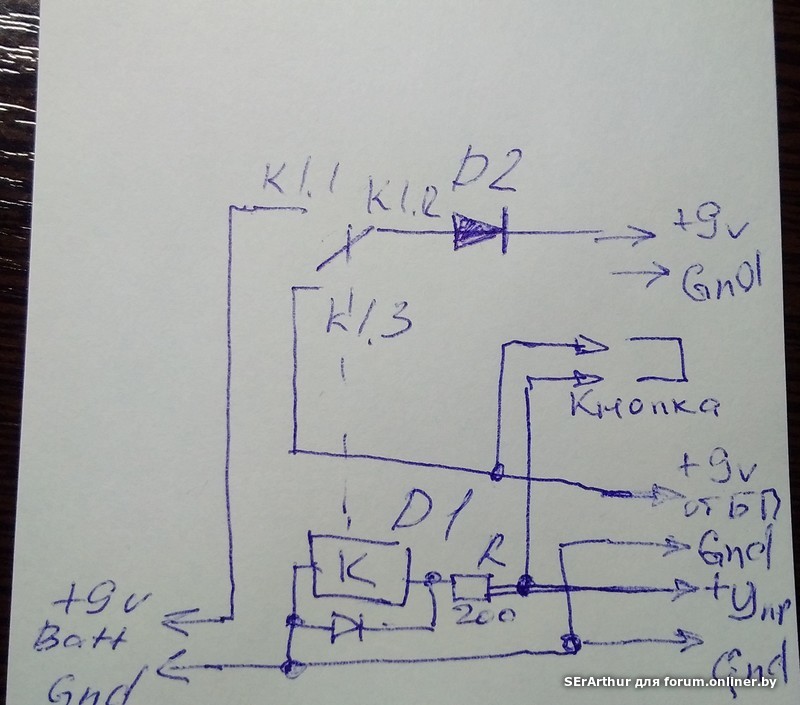 K1.1
K1.2
D2
+9v
Gnd
K1.3
Кнопка
+9v
от БП
D1
Gnd
K
R
200
+Упр
Gnd
+9v
Batt
Gnd
SErArthur для forum.onliner.by